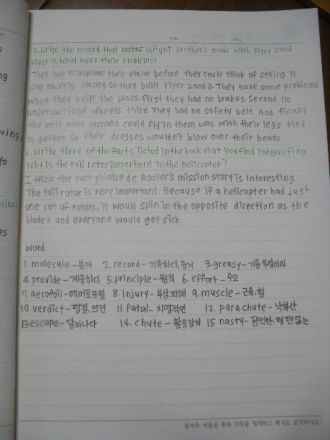 5. Write the record that Wright brother's made with Flyer 2 and
Flyer 3. What were their problems?
They had to improve their plane before they could think of selling it
and making money so they built Flyer 2 and 3. They have some problems
when they built the plans. First they had no brakes. Second no
undercarriage wheels. third They had no safety belt. And finally
the only were women could fly in them was with their legs tied
together so their dresses wouldn't blow over their heads.
6. Write three of the facts listed in the book that you find interesting
Why is the tail rotor important in the helicopter?
I think the part pilatre de Rozier's mission story is interesting.
The tail rotor is very important. Because if a helicopter had just
one set of rotors, it would spin in the opposite direction as the
blades and everyone would get sick.
word
1. molecule - 분자 2. record - 기록하다, 증거 3. greasy - 기름투성이의
4. provide - 제공하다 5. principle - 원칙 6. effort - 수고
7. aerofoil - 에어로포일 8. injury - 부상, 피해 9. muscle - 근육, 힘
10. verdict - 평결, 의견 11. fatal - 치명적인 12. parachute - 낙하산
13. escape - 달아나다 14. chute - 활송장치 15. nasty - 끔찍한,